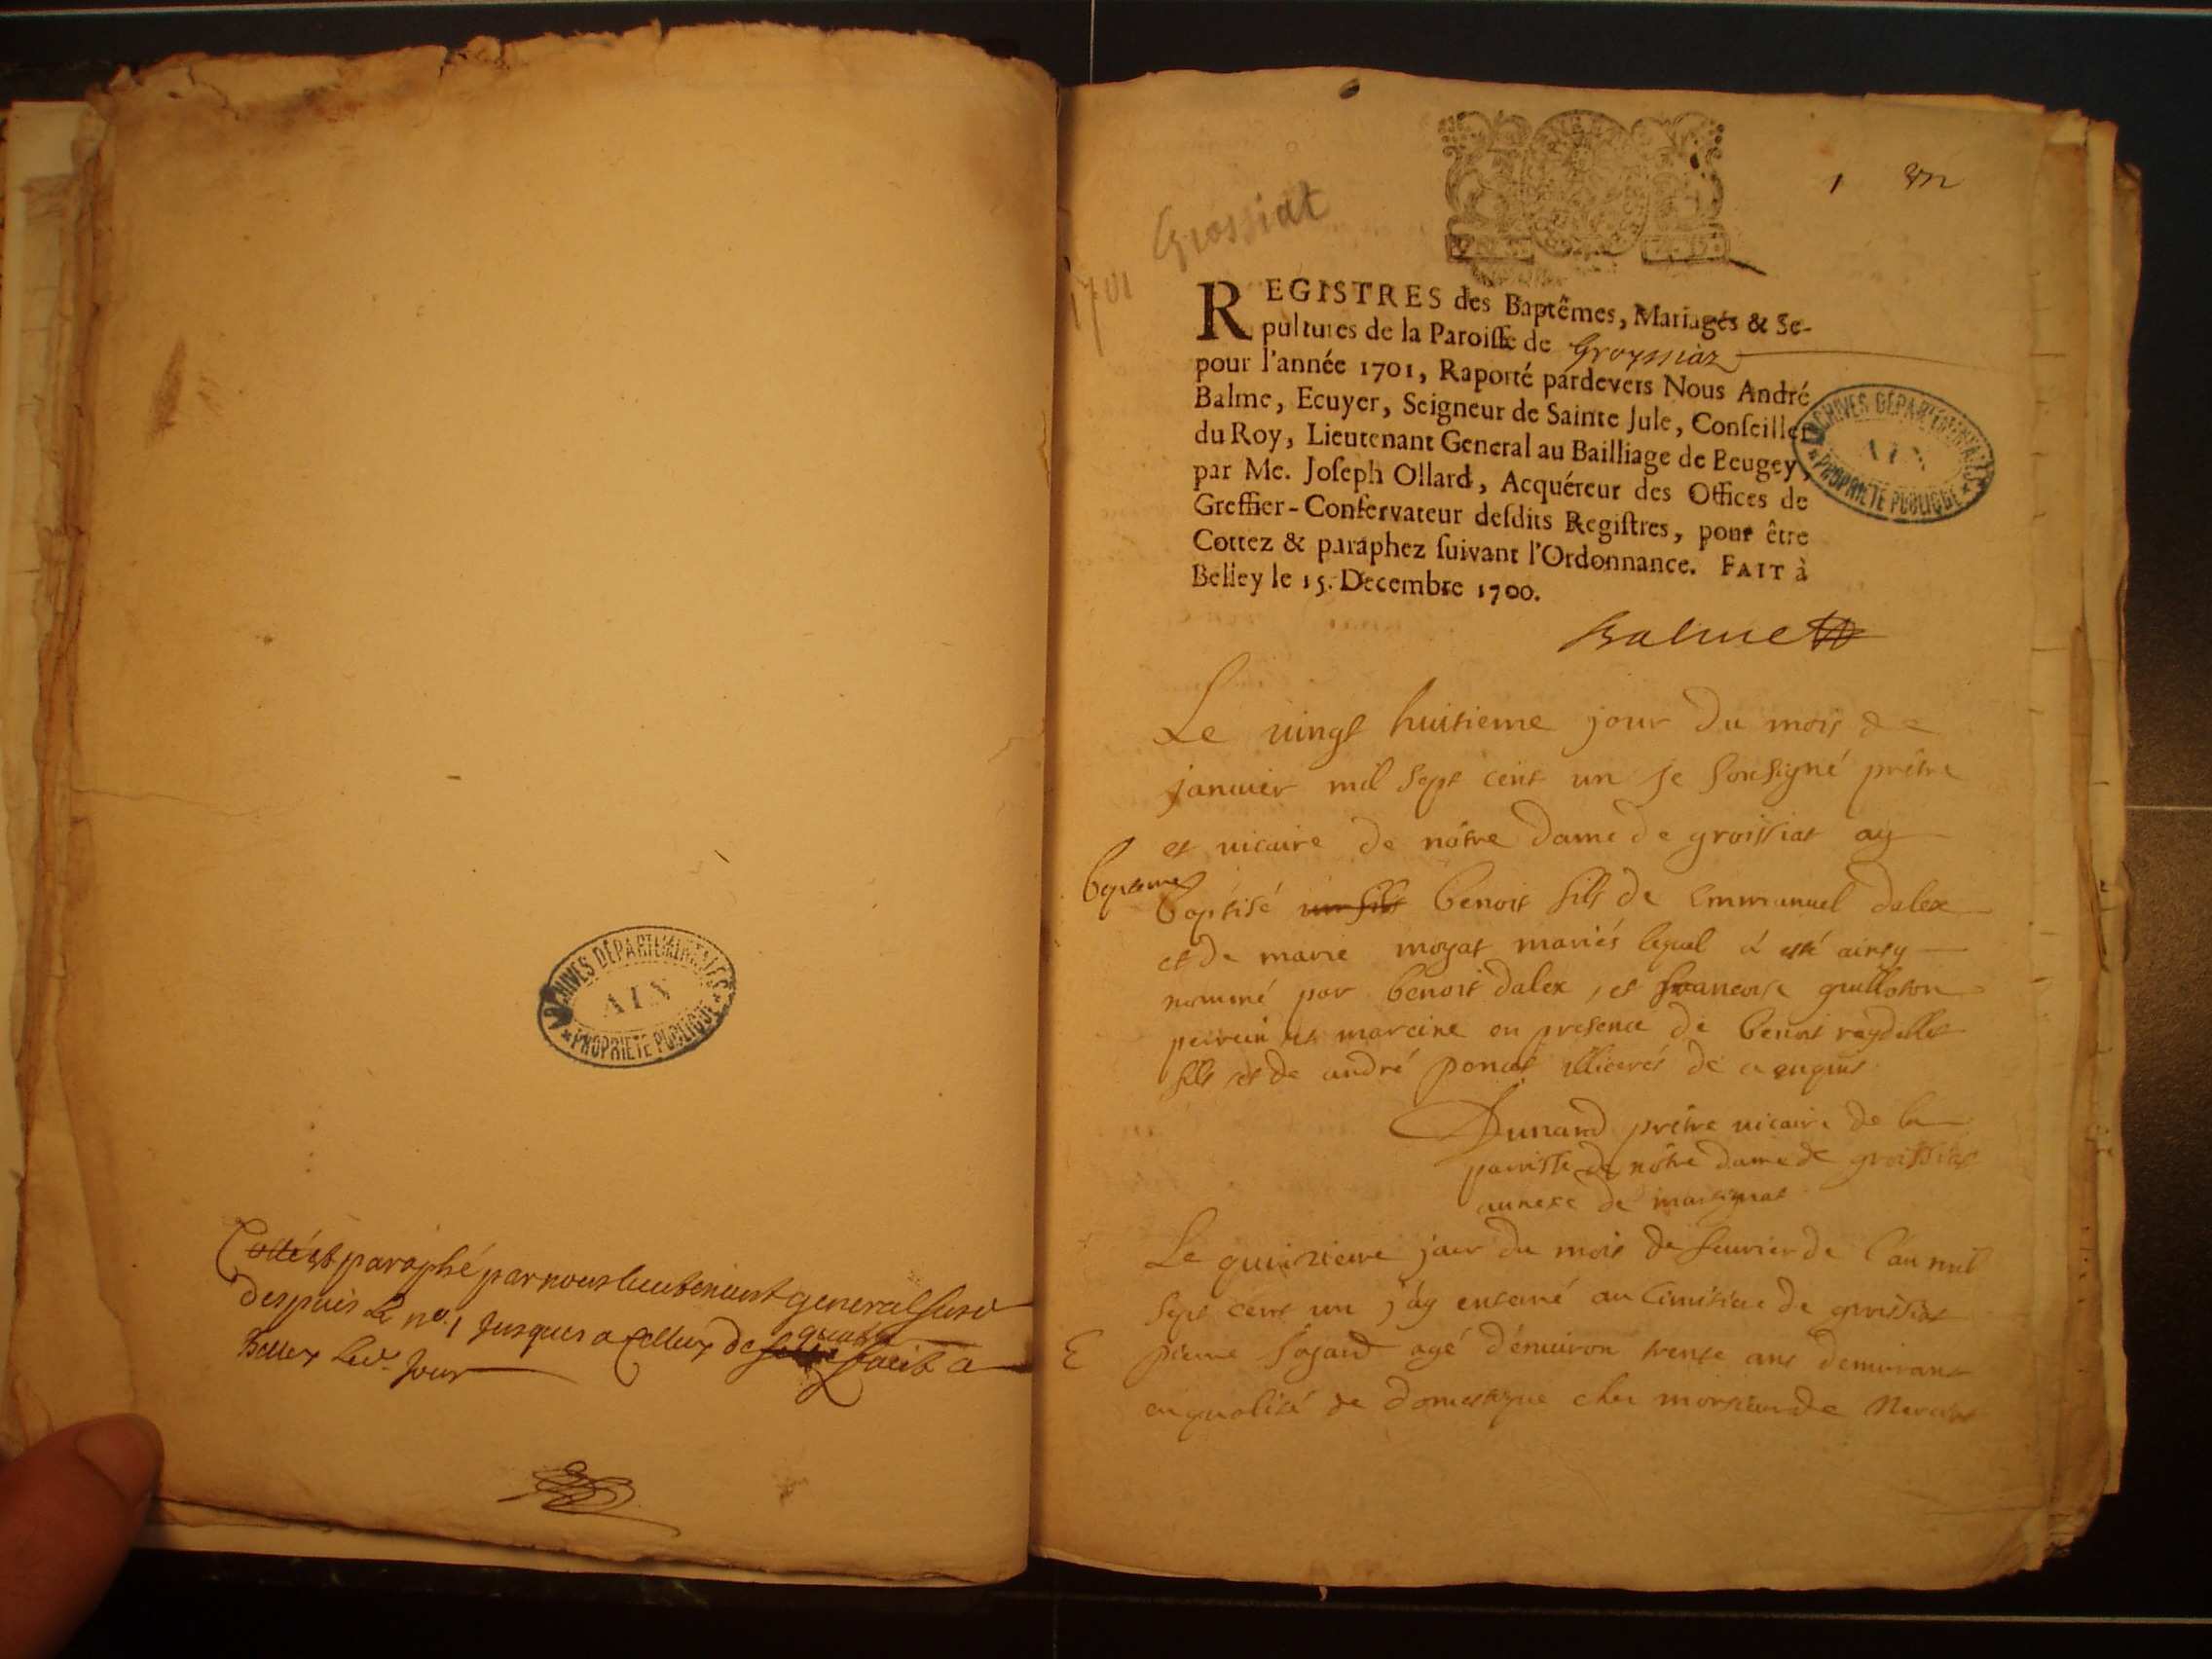 Cotté et paraphé par nous lieutenant general susd
despuis le no. 1 jusques a celluy de quatre fait a
Belley led. jour
ARCHIVES DÉPARTEMENTALES
AIN
PROPRIÉTÉ PUBLIQUE
1 un
Grossiat
1701
REGISTRES des Baptêmes, Mariages & Se-
pultures de la Paroisse de Groyssiaz
pour l'année 1701, Raporté pardevers Nous André
Balme, Ecuyer, Seigneur de Sainte Jule, Conseiller
du Roy, Lieutenant General au Bailliage de Beugey,
par Me. Joseph Ollard, Acquéreur des Offices de
Greffier-Conservateur desdits Registres, pour être
Cottez & paraphez suivant l'Ordonnance. FAIT à
Belley le 15. Decembre 1700.
ARCHIVES DÉPARTEMENTALES
AIN
PROPRIÉTÉ PUBLIQUE
Balme
Le vingt huitieme jour du mois de
janvier mil sept cent un je sousigné prêtre
et vicaire de nôtre dame de groissiat ay
bapteme
baptisé un fils benoit fils de Emmanuel dalex
et de marie moyat mariés lequel à esté ainsy
nommé par benoit dalex, et francoise guilloton
perrein et mareine en presence de benoit
fils et de andré ponat illiterés de
Dunand prêtre vicaire de la
paroisse de nôtre dame de groissiat
annexe de martignat
Le quinzieme jour du mois de fevrier de l'an mil
sept cent un j'ay enterré au cimitiere de groissiat
E
pierre agé d'environ trente ans demeurant
en qualité de domestique chez monsieur de